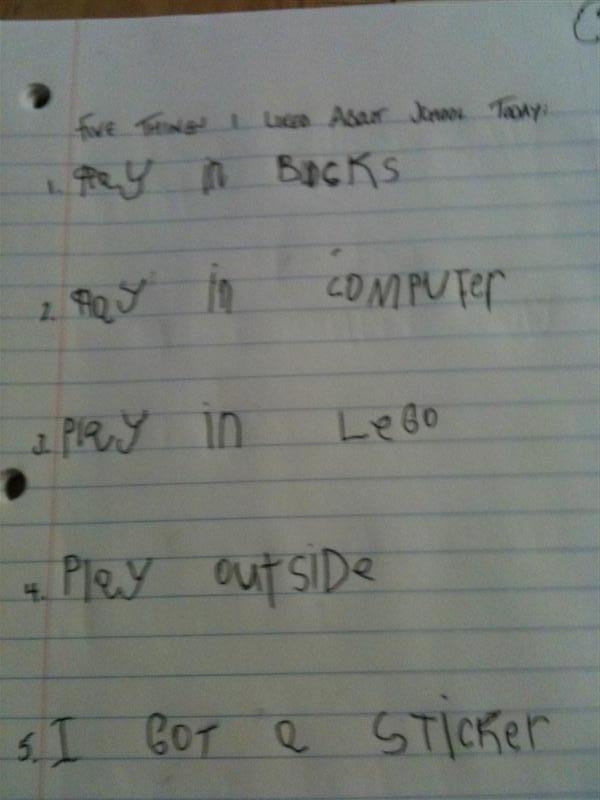 Five Things I Liked About School Today:
1. Play in Blocks
2. Play in COMPUTer
3. Play in LeGO
4. Play outsiDe
5. I GOT a STicKer